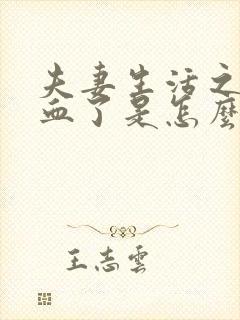 夫妻生活之
血了是怎麼
王志雲